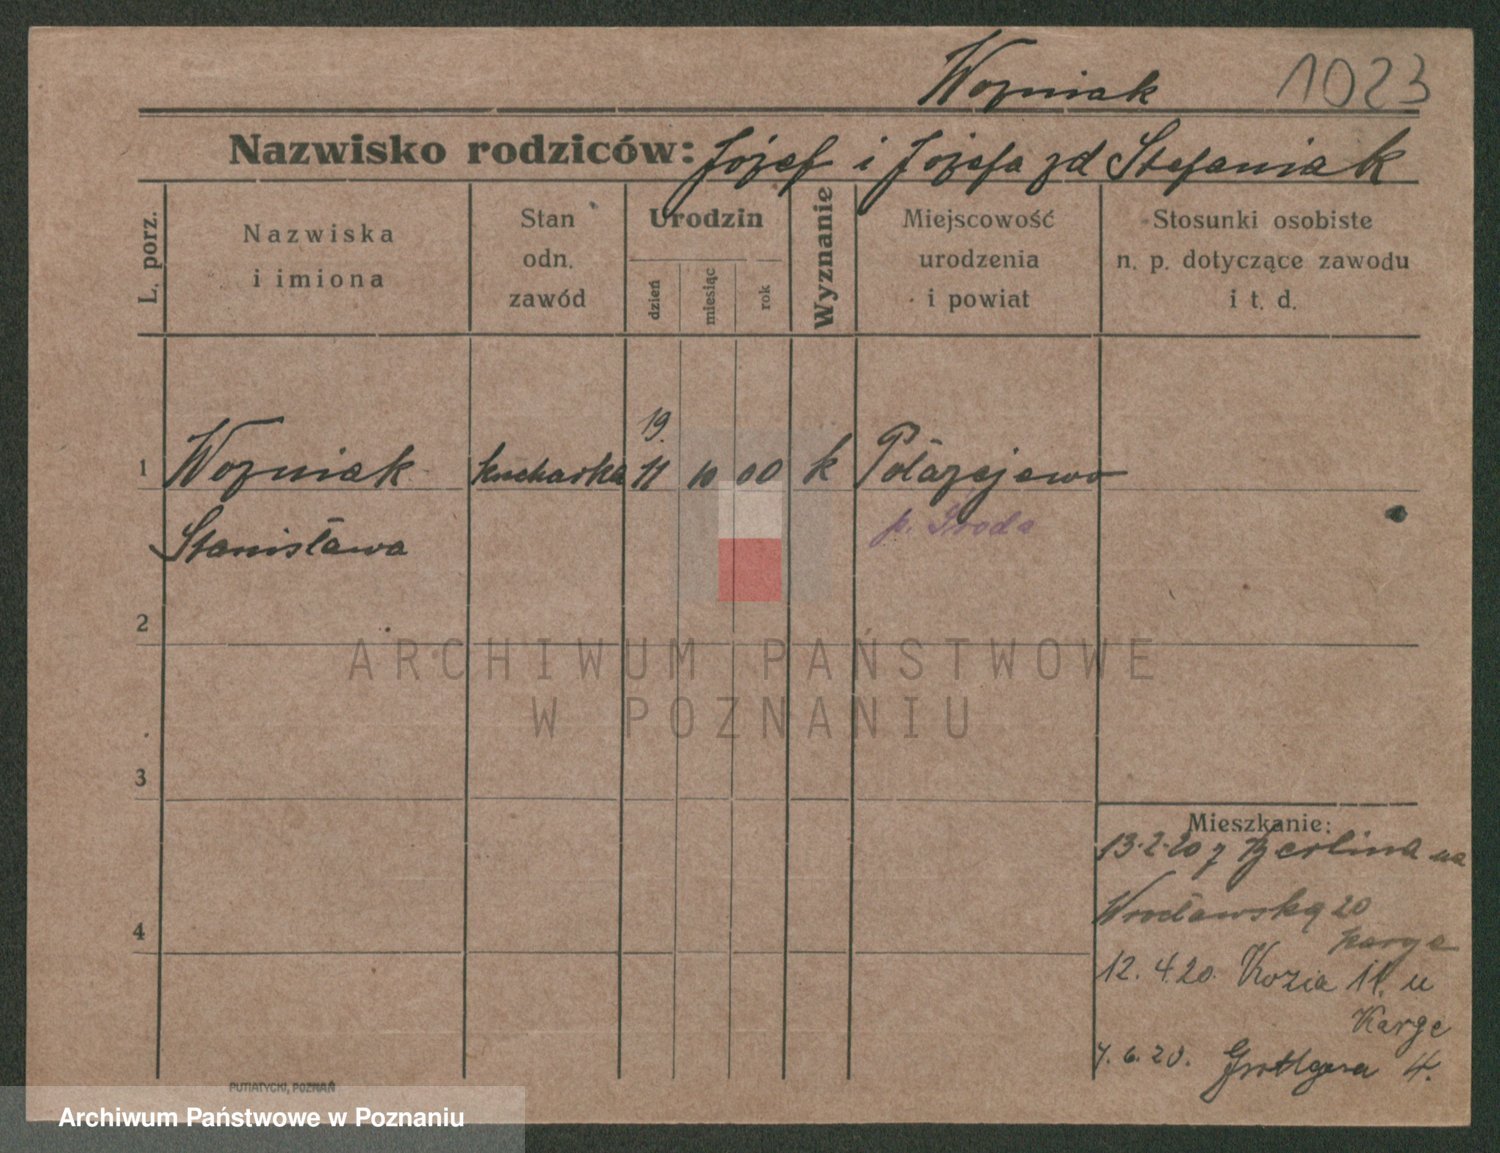 Wozniak 1023
Nazwisko rodziców: Józef i Józefa zd Stefaniak
L. porz.
Nazwiska
i imiona
Stan
odn.
zawód
Urodzin
dzień
miesiąc
rok
Wyznanie
Miejscowość
urodzenia
i powiat
Stosunki osobiste
n. p. dotyczące zawodu
i t. d.
19.
1 Wozniak kucharka 11 10 00 k Połazejewo
p. Środa
Stanisława
2
ARCHIWUM PAŃSTWOWE
W POZNANIU
3
Mieszkanie:
13.2.20 z Berlina na
Wrocławską 20
Karge
4
12.4.20. Kozia 11. u
Karge
7.6.20. Grottgera 4.
PUTIATYCKI, POZNAŃ
Archiwum Państwowe w Poznaniu